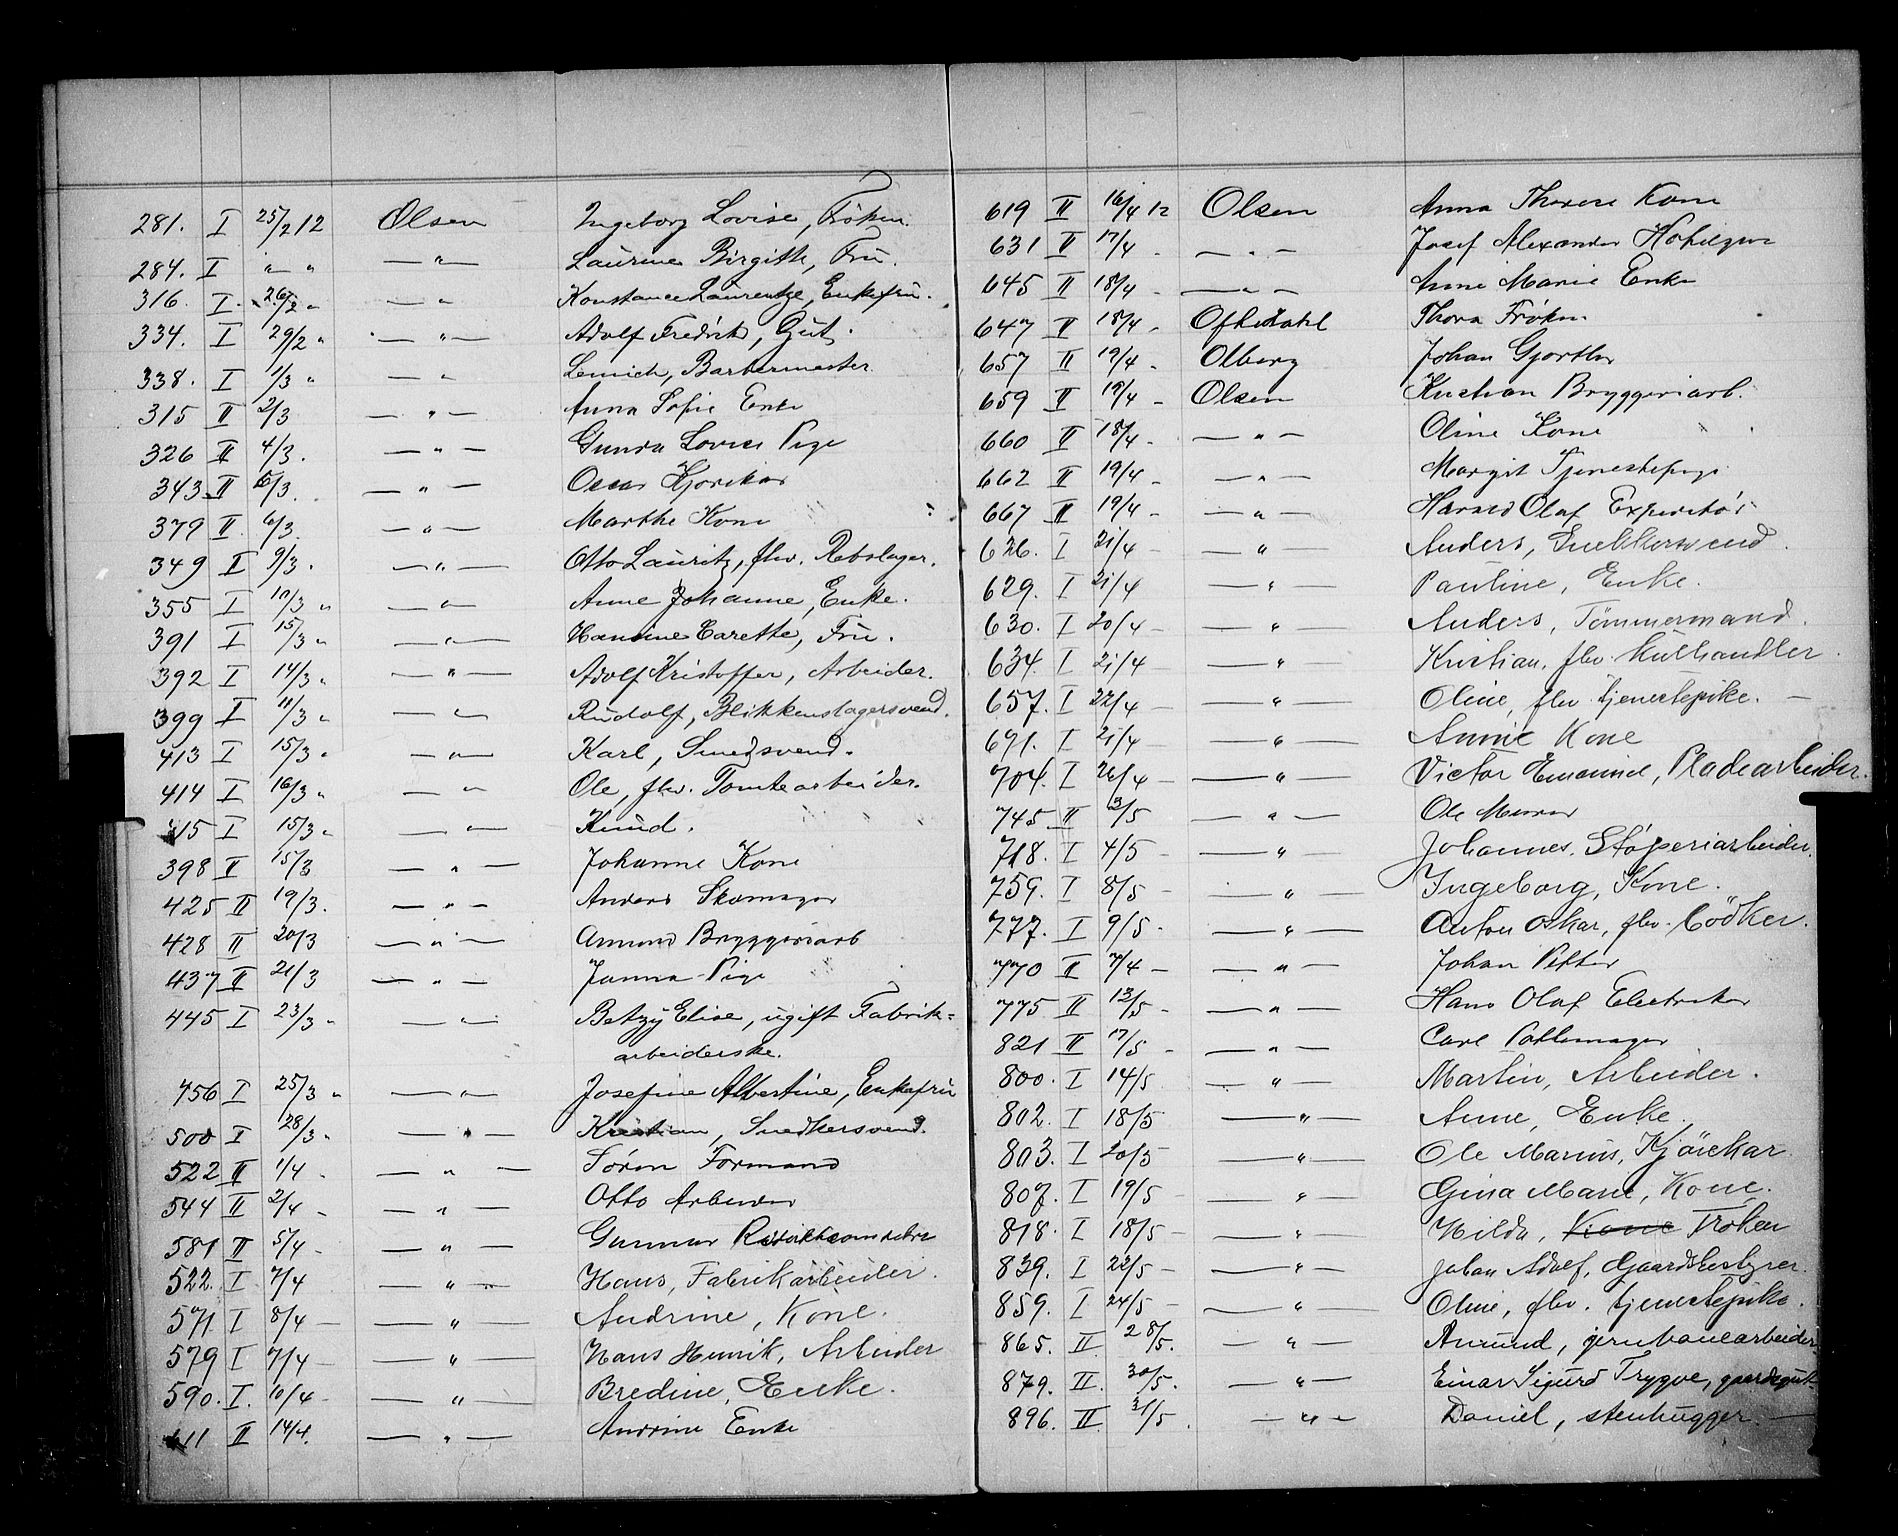 281. I 25/2 12 Olsen Ingeborg Lovise, Fröken.
284. I " " — " — Laurine Birgitte, Fru.
316. I. 26/2 " — " Konstance Laurentze, Enkefru.
334. I 29/2 " — " — Adolf Fredrik, Gut.
338. I 1/3 " — " Lemich, Barbermester
315 II 2/3 — " — Anna Sofie Enke
326 II 4/3. — " — Gunda Lovise Pige
343 II 5/3. — " — Oscar Kjørikar
379 II 6/3. — " — Marthe Kone
349 I 9/3. — " — Otto Lauritz, fhv. Rebslager.
355 I 10/3 " — " — Anne Johanne, Enke.
391 I 15/3 " — " — Hansine Carette, Fru.
392 I 14/3 " — " — Adolf Kristoffer, Arbeider.
399 I 11/3 " — " — Rudolf, Blikkenslagersvend.
413 I 15/3 " — " — Karl, Smedsvend.
414 I 16/3 " — " Ole, fhv. Tomtearbeider.
415 I 15/3 " — " — Knud.
398 II 15/3 — " — Johanne Kone
425 II 19/3. — " — Anders Skomager
428 II 20/3 — " — Amund Bryggeriarb
437 II 21/3 — " — Janna Pige
445 I 23/3 " — " — Betzy Elise, ugift Fabrik=
arbeiderske.
456 I 25/3 " — " — Josefine Albertine, Enkefru
500 I 28/3 " — " — Kristian, Snedkersvend.
522 II 1/4 - — " — Sören Formand
544 II 2/4 - — " — Otto Arbeider
581 II 5/4 - — " — Gunnar
522. I 7/4 — " — Hans, Fabrikarbeider.
571 I 8/4 — — " — Andrine, Kone.
579 I 7/4 — — " — Hans Henrik, Arbeider
590. I. 10/4 - — " — Bredine, Enke.
611 II 14/4. — " — Andrine Enke
619 II 16/4 12 Olsen Anna Therese Kone
631 II 17/4 - — " — Josef Alexander
645 II 18/4 - — " — Anne Marie Enke
647 II 18/4 - Oftedahl Thora Frøken
657 II 19/4 - Olberg Johan Gjørtler
659 II 19/4 - Olsen Kristian Bryggeriarb.
660 II 18/4 - — " — Oline Kone
662 II 19/4 - — " — Margit Tjenestepige
667 II 19/4 - — " — Harald Olaf Expeditør
626. I 21/4 — — " — Anders, Snekkersvend.
629. I 21/4 — " — Pauline, Enke.
630. I 20/4 — — " — Anders, Tömmermand.
634. I 21/4 — — " Kristian, fhv. Kulhandler.
657. I 22/4 — — " — Oline, fhv. tjenestepike. —
691. I 21/4 — — " — Annie Kone
704. I 26/4 — — " — Victor Emanuel, Pladearbeider.
745 II 3/5 — " — Ole Murer
718. I 4/5 — — " — Johannes, Støperiarbeider.
759. I 8/5 — — " — Ingeborg, Kone.
777. I 9/5 - — " — Anton Oskar, fhv. Bödker.
770 II 7/4 — — " — Johan Petter
775 II 13/5 - — " — Hans Olaf Electriker
821 II 17/5 - — " — Carl Pottemager
800. I 14/5 — " — Martin, Arbeider.
802. I 18/5 — " — Anne, Enke.
803. I 20/5 — — " — Ole Marius, Kjörekar
807. I 19/5 — — " — Gina Marie, Kone.
818. I 18/5 — — " — Hilda, Kone Froken
839. I 22/5 — — " — Johan Adolf, Gaardsbestyrer.
859. I 24/5 — — " — Oline, fhv. tjenestepike.
865. II 28/5. — " — Amund, jernbanearbeider
879. II. 30/5. — " — Einar Sigurd Trygve, gaardsgut
896. II 31/5. — " — Daniel, stenhugger. —